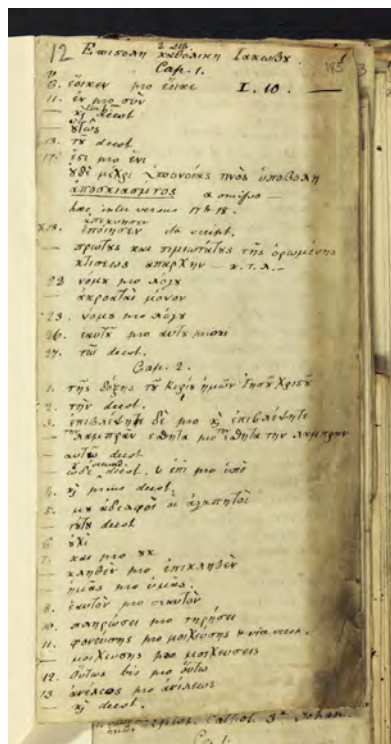 12 Επιςολη καθολικη Ιακωβου
Cap. 1.
6. ἔοικεν pro ἔοικε I. 10. —
11. ἐν pro σὺν
— κ̀ deest
— ȣ̔τως
13. τοῦ deest.
17. ἐςι pro ἔνι
ȣ̓δὲ μέχρι ὑπονοίας τινὸς ὑποβολη
ἀποσκιασματος a omisso —
haec inter versus 17 & 18.
18. ἀπεκύησεν
ἐποίησεν
— πρώτȣς και τιμιωτάτȣς της ὁρωμένης
κτισεως απαρχην — κ. τ. λ. —
22 νομȣ pro λόγȣ
— ἀκροαταὶ μόνον
23. νομȣ pro λόγȣ
26. ἑαυτȣ̃ pro αυτȣ
27. τῷ deest.
Cap. 2.
1. τῆς δόξης τȣ̃ Κυρίȣ ἡμῶν Ἰησȣ̃ Χριςȣ̃
2. τὴν deest.
3. ἐπιβλέψητε δὲ pro κ̀ ἐπιβλέψητε
— λαμπρὰν εσθῆτα pro ἐσθῆτα την λαμπραν
— αυτῷ deest
— ὧδε deest, & ἐπὶ pro ὑπὸ
4. κ̀ primo deest.
5. μȣ ἀδελφοὶ οἱ ἀγαπητοὶ
— τȣ́τȣ deest
6 ȣ̓χὶ
7. και pro ȣκ
— κληθὲν pro ἐπικληθὲν
— ἡμᾶς pro ὑμᾶς.
8. ἑαυτὸν pro σεαυτὸν
10. πληρώσει pro τηρήσει
11. φονεύσης pro μοιχεύσης & vice vers.
— μοιχευσης pro μοιχευσεις
12. ὅυτως bis pro ὅυτω
13 ἀνέλεος pro ἀνίλεως
— κ̀ deest.